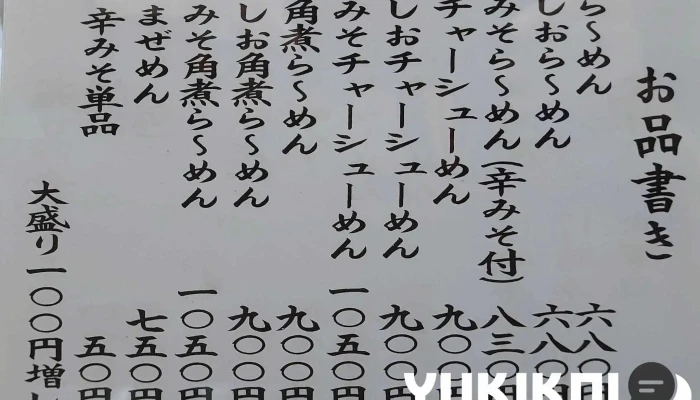 お品書き
ら〜めん 六八〇円
しおら〜めん 六八〇円
みそら〜めん(辛みそ付) 八三〇円
チャーシューめん 九〇〇円
しおチャーシューめん 九〇〇円
みそチャーシューめん 一〇五〇円
角煮ら〜めん 九〇〇円
しお角煮ら〜めん 九〇〇円
みそ角煮ら〜めん 一〇五〇円
まぜめん 七五〇円
辛みそ単品 五〇円
大盛り一〇〇円増し
YUKIKAI